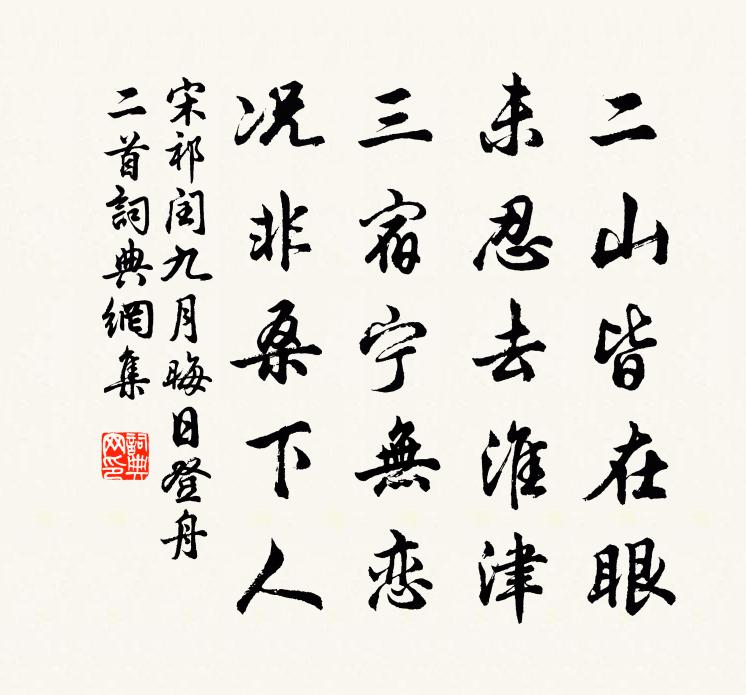 二山皆在眼
未忍去淮津
三宿宁無恋
况非桑下人
宋祁闰九月晦日登舟
二首詞典網集
詞典网印